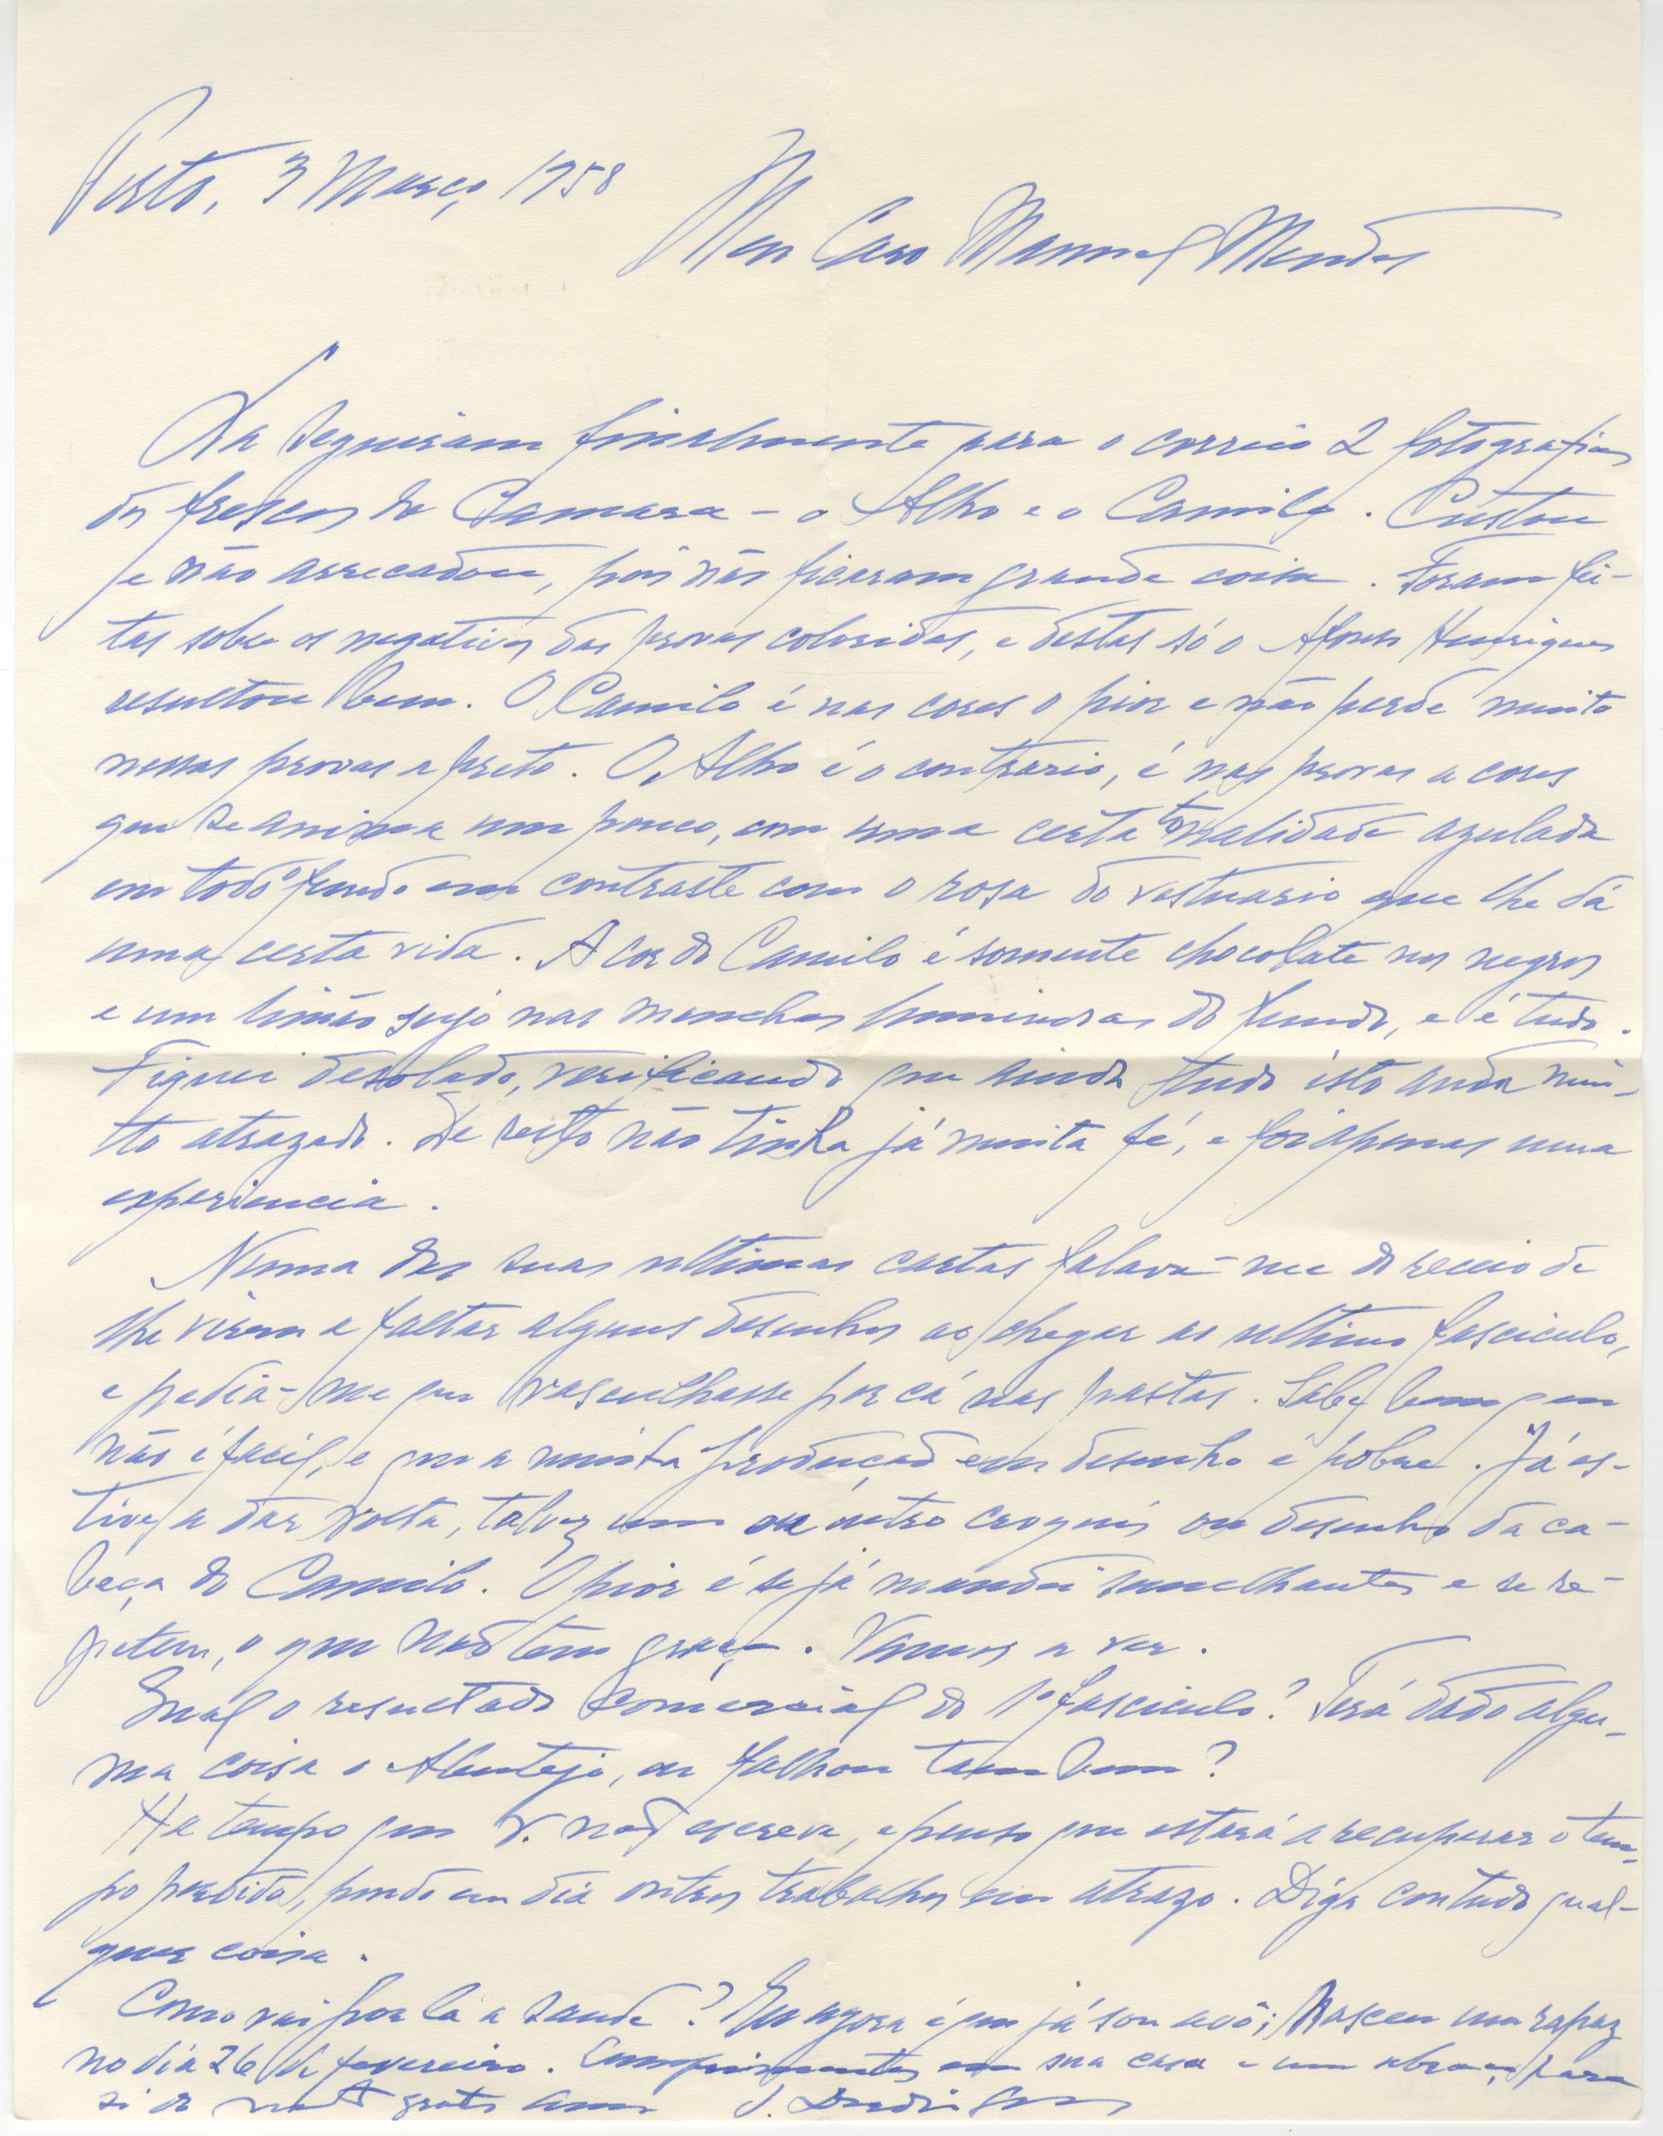 Porto, 3 Março, 1958
Meu Caro Manuel Mendes
La seguiram finalmente para o correio 2 fotografias
dos frescos da Camara - o Alho e o Camilo. Custou
e não arrecadou, pois não ficaram grande coisa. Foram fei-
tas sobre os negativos das provas coloridas, e destas só o Afonso Henriques
resultou bem. O Camilo é nas cores o pior e não perde muito
nessas provas a preto. O Alho é o contrario, é nas provas a cores
que se anima um pouco, com uma certa tonalidade azulada
em todo o fundo em contraste com o rosa do vestuario que lhe dá
uma certa vida. A cor do Camilo é somente chocolate nos negros
e um limão sujo nas manchas luminosas do fundo, e é tudo.
Fiquei desolado, verificando que ainda tudo isto anda mui-
to atrazado. De resto não tinha já muita fé, e foi apenas uma
experiencia.
Numa das suas ultimas cartas falava-me do receio de
lhe virem a faltar alguns desenhos ao chegar ao ultimo fasciculo,
e pedia-me que vasculhasse por cá nas pastas. Sabe bem que
não é facil, e que a minha produção em desenho é pobre. Já es-
tive a dar volta, talvez um ou outro croquis ou desenho da ca-
beça do Camilo. O pior é se já mandei semelhantes e se re-
petem, o que não tem graça. Vamos a ver.
Qual o resultado comercial do 1º fasciculo? Terá dado algu-
ma coisa o Alentejo, ou falhou tambem?
Ha tempo que V. não escreve, e penso que estará a recuperar o tem-
po perdido, pondo em dia outros trabalhos em atrazo. Diga contudo qual-
quer coisa.
Como vai por lá a saude? Eu agora é que já sou avô; Nasceu um rapaz
no dia 26 de fevereiro. Cumprimentos em sua casa e um abraço para
si do mto grato amo